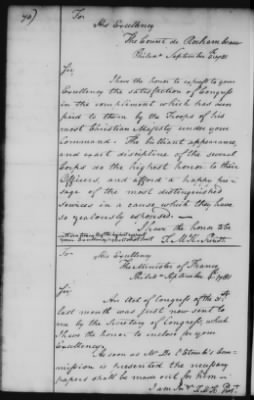 For
His Excellency
The Count de Rochambeau
Philad.a September
Sir,
I have the honor to express to your
Excellency the satisfaction of Congress
in the compliment which has been
paid to them by the Troops of his
most Christian Majesty under your
Command. The brilliant appearance
and exact discipline of the several
Corps do the highest honor to their
Officers, and afford a happy pre-
sage of the most distinguished
Services in a cause, which they have
so zealously espoused.—
I have the honor to be
with
your Excellency's
T. M:K.
For
His Excellency
The Minister of France
Philad.a September
Sir,
An Act of Congress of the
last month was just now sent to
me by the Secretary of Congress, which
I have the honor to enclose for your
Excellency.
As soon as Mr. De L'Etombe's Com-
mission is presented the necessary
papers shall be made out for him—
I am